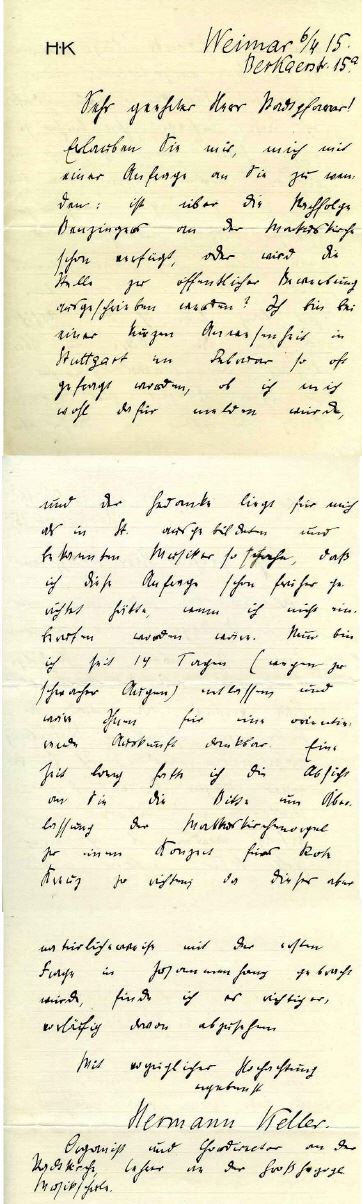 H·K
Weimar 6/4 15.
Berkaerstr. 15a
Sehr geehrter Herr Stadtpfarrer!
Erlauben Sie mir, mich mit
einer Anfrage an Sie zu wen-
den: ist über die Nachfolge
Benzingers an der Markuskirche
schon verfügt, oder wird die
Stelle zur öffentlicher Bewerbung
ausgeschrieben werden? Ich bin bei
einer kurzen Anwesenheit in
Stuttgart im Februar so oft
gefragt worden, ob ich mich
wohl dafür melden würde,
und der Gedanke liegt für mich
als in St. ausgebildeten und
bekannten Musiker so nahe, daß
ich diese Anfrage schon früher ge-
richtet hätte, wenn ich nicht ein-
berufen worden wäre. Nun bin
ich seit 14 Tagen (wegen zu
schwacher Augen) entlassen und
wäre Ihnen für eine orientie-
rende Auskunft dankbar. Eine
Zeit lang hatte ich die Absicht
an Sie die Bitte um Über-
lassung der Markuskirchenorgel
zu einem Konzert fürs Rote
Kreuz zu richten; da dieses aber
natürlicherweise mit der ersten
Frage in Zusammenhang gebracht
würde, finde ich es richtiger,
vorläufig davon abzusehen
Mit vorzüglicher Hochachtung
ergebenst
Hermann Keller.
Organist und Chordirector an der
Stadtkirche, Lehrer an der Großherzogl
Musikschule.